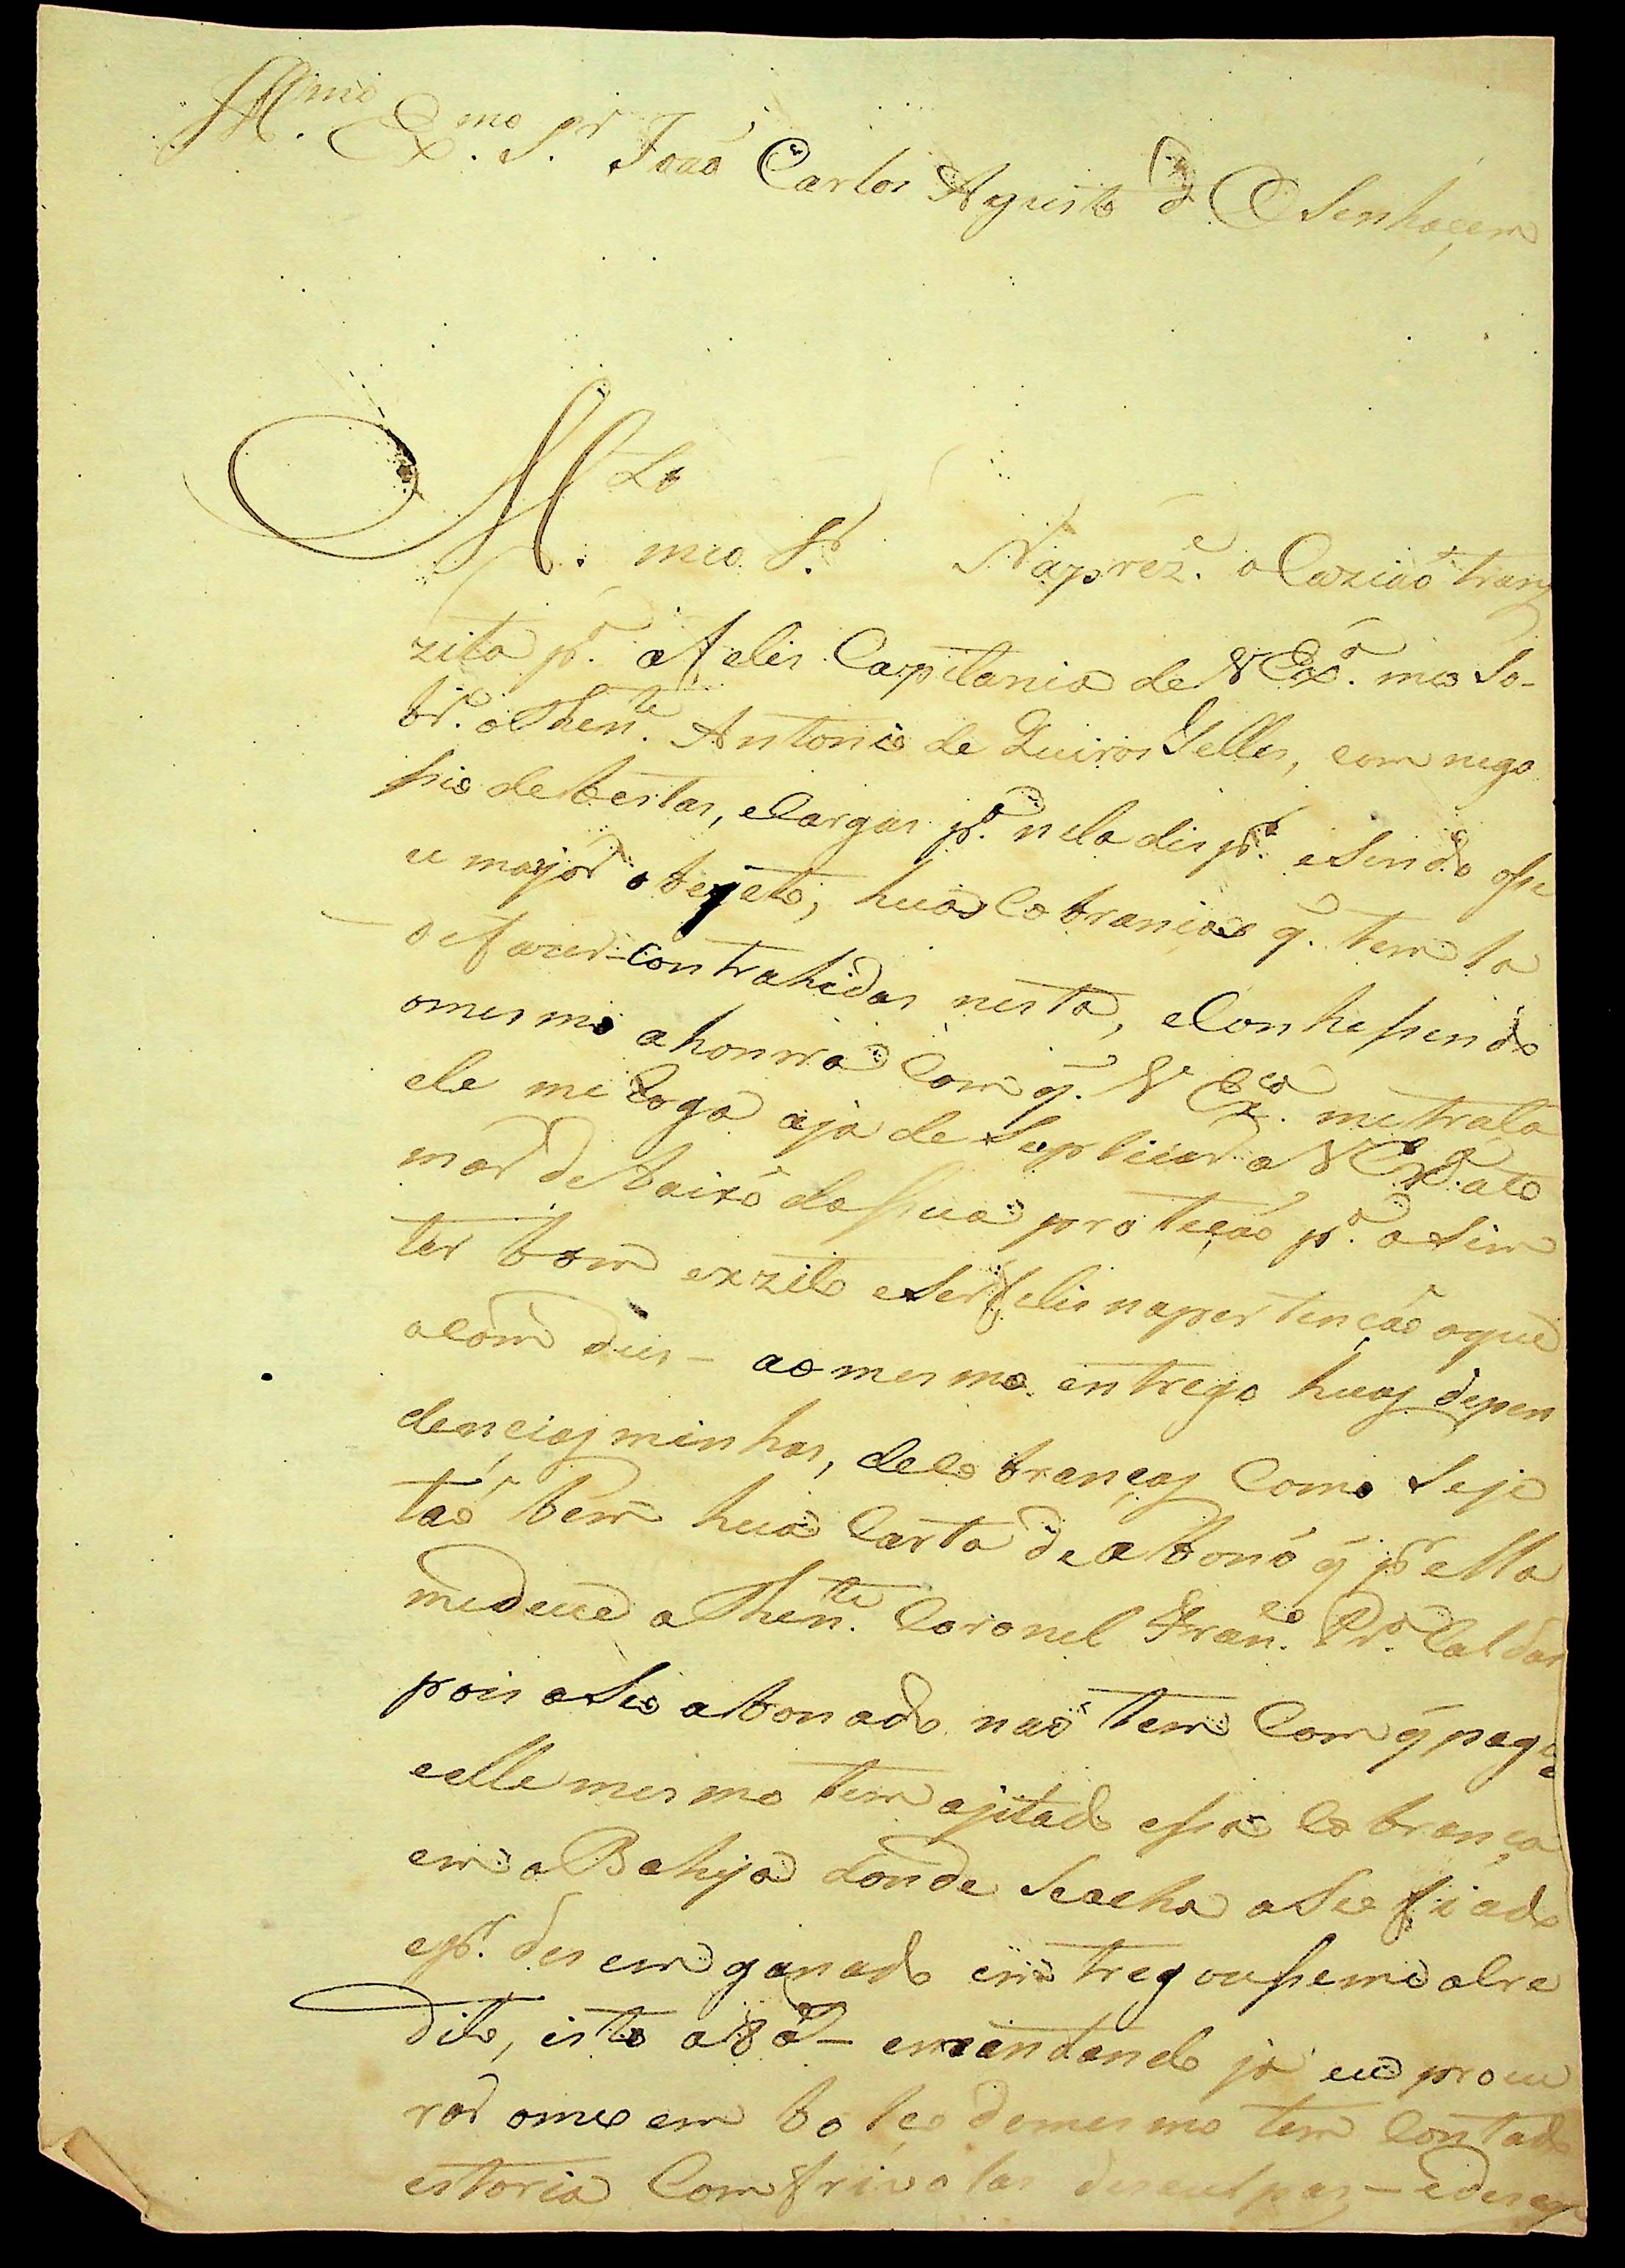 Ill.mo Ex.mo S.r Joaõ Carlos Agusto d Oeynhaçem
M.to meo S.r Na prez.e ocaziaõ tranz
zita p.a a felis Capitania de V Ex.a meo So-
br.o o Then.te Antonio de Quiros Telles, com nego
sio de bestas, e Cargas p.a nela disp.r e sendo o se
u major obejeto, huas Cobranças q. tem la
de fazer contrahidas nesta, e Conhessendo
o mesmo a honrra Com q. V Ex.cia me trata
ele me Roga aja de Suplicar a V Ex.a a to
mar debaixo da sua proteçaõ p.a asim
ter bom exzito e Ser felis na pertençaõ a que
a Com dus - ao mesmo entrego huas depen
dencias minhas, de Cobranças Como Seje
taõ bem hua Carta de abonó q p.r ella
me deve o Then.te Coronel Fran.co Pr.a Caldas
pois o Seo abonado naõ tem Com q pague
e elle mesmo tem ajitado essa Cobrança
em a Bahya donde Se acha o Seo fiado
e p.r desemganado entregousseme o Cre
dito, isto a 8 a.s - e mandando ja eu procu
rar o meo em bolço do mesmo tem Contado
estoria Com frivolas desculpas -